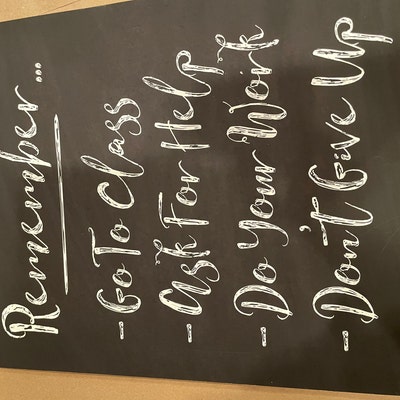 Remember...
-Go To Class
-Ask For Help
-Do Your Work
-Don't Give Up